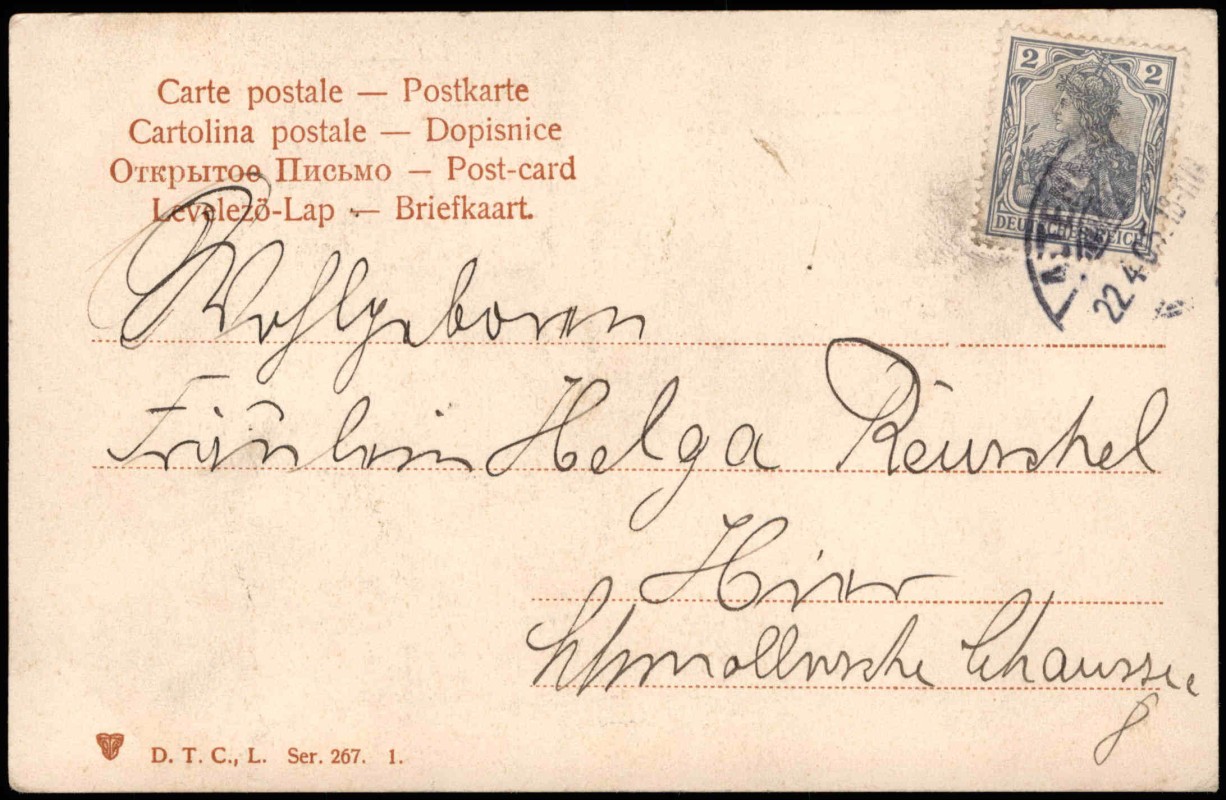 Carte postale — Postkarte
Cartolina postale — Dopisnice
Открытое Письмо — Post-card
Levelező-Lap — Briefkaart.
2 2
DEUTSCHES REICH
22.4.0
Wohlgeboren
Fräulein Helga Reuschel
Hier
Schmöllnsche Chaussee
8
D. T. C., L. Ser. 267. 1.